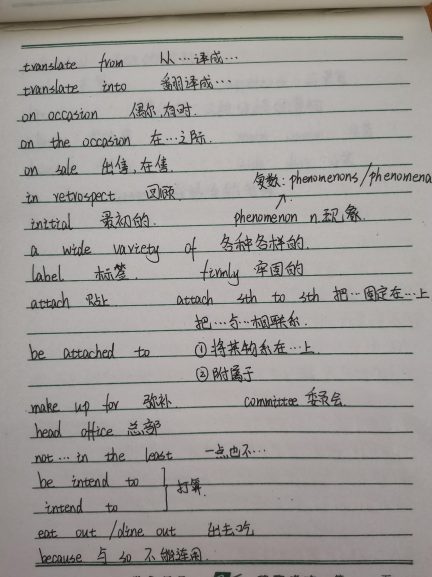 translate from 从…译成…
translate into 翻译成…
on occasion 偶尔,有时.
on the occasion 在…之际.
on sale 出售,在售.
复数: phenomenons/phenomena
in retrospect 回顾.
initial 最初的. phenomenon n.现象.
a wide variety of 各种各样的.
label 标签 firmly 牢固的
attach 贴上 attach sth to sth 把…固定在…上
把…与…相联系.
be attached to ①将某物系在…上
②附属于
make up for 弥补. committee 委员会.
head office 总部
not… in the least 一点也不…
be intend to
打算.
intend to
eat out /dine out 出去吃
because 与 so 不能连用.